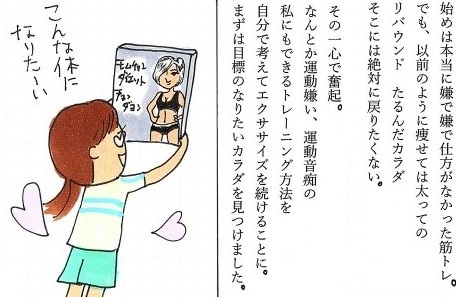 始めは本当に嫌で嫌で仕方がなかった筋トレ。
でも、以前のように痩せては太っての
リバウンド　たるんだカラダ
そこには絶対に戻りたくない。
その一心で奮起。
なんとか運動嫌い、運動音痴の
私にもできるトレーニング方法を
自分で考えてエクササイズを続けることに。
まずは目標のなりたいカラダを見つけました。
こんな体に
なりたーい
モムチャン
ダイエット
チョン
ダヨン